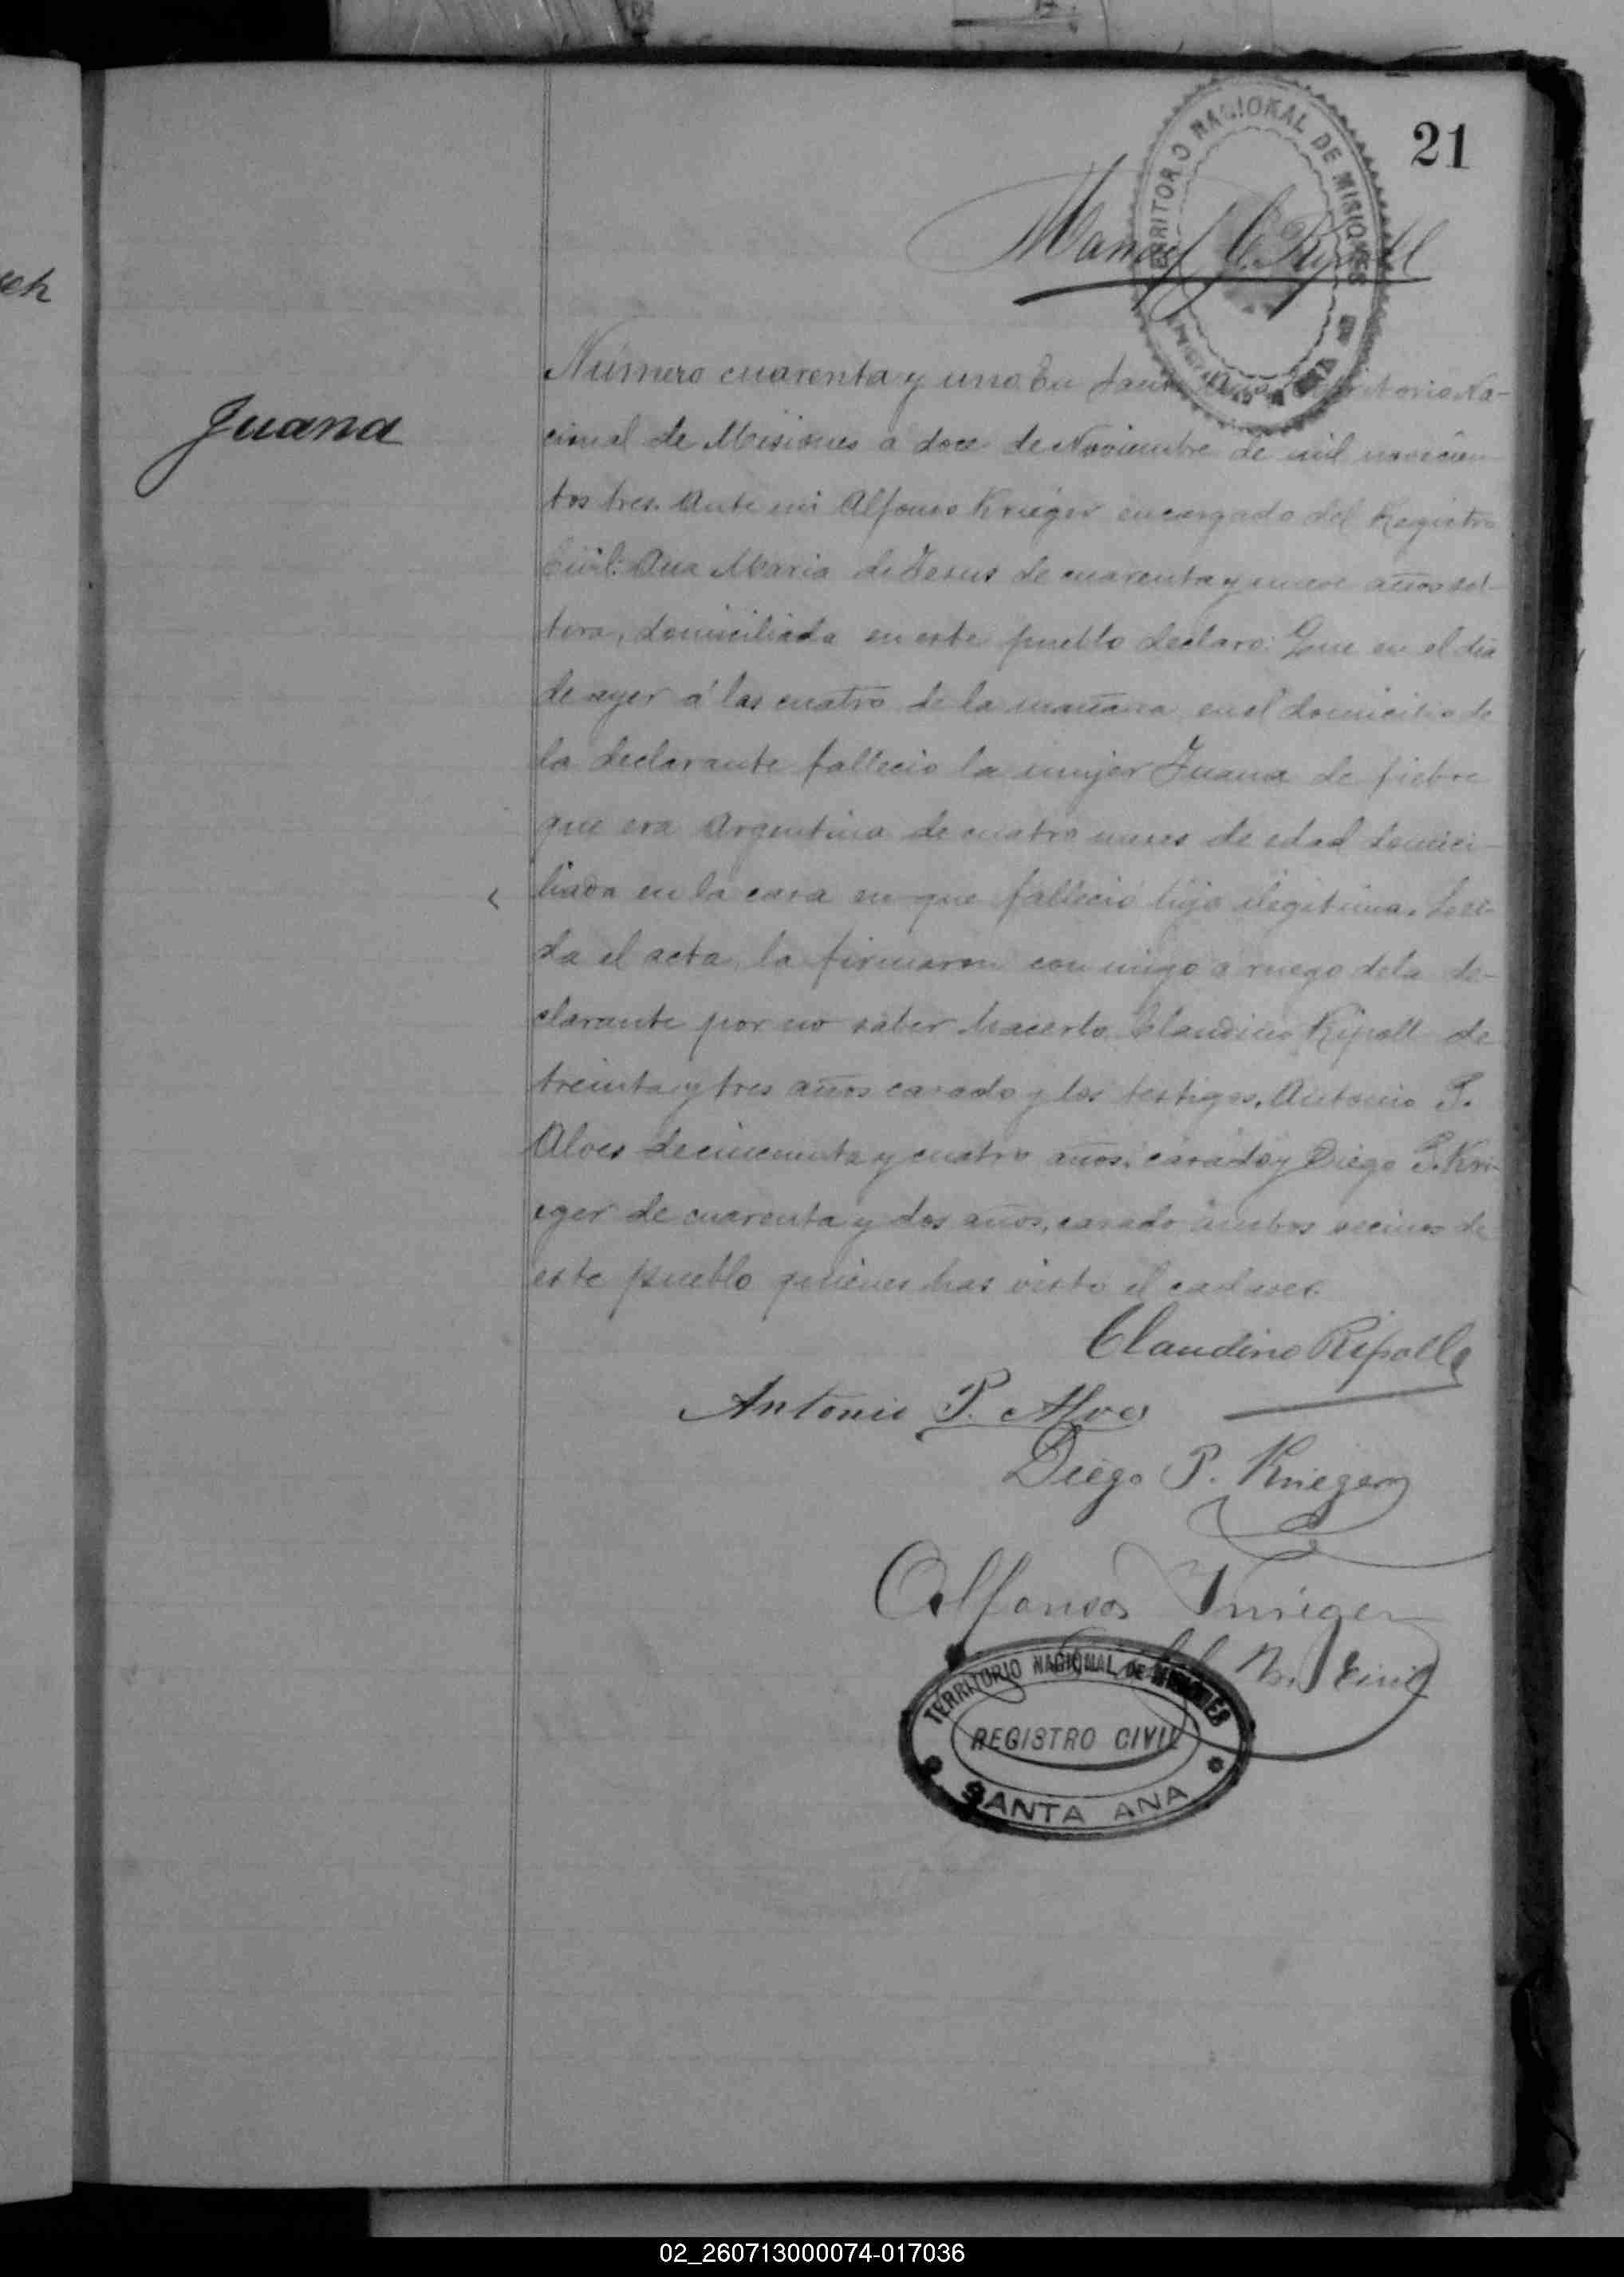 21
TERRITORIO NACIONAL DE MISIONES
Manuel C. Ripoll
Juana
Número cuarenta y uno. En Santa Ana Territorio Na-
cional de Misiones a doce de Noviembre de mil novecien-
tos tres. Ante mi Alfonso Krieger encargado del Registro
Civil: Ana Maria de Jesus de cuarenta y nueve años sol-
tera, domiciliada en este pueblo declaro: Que en el dia
de ayer á las cuatro de la mañana en el domicilio de
la declarante fallecio la mujer Juana de fiebre
que era Argentina de cuatro meses de edad domici-
liada en la casa en que fallecio hija ilegitima. Lei-
da el acta, la firmaron con migo a ruego dela de-
clarante por no saber hacerlo Claudino Ripoll de
treinta y tres años casado y los testigos, Antonio P.
Alves de cincuenta y cuatro años, casado y Diego P. Kri-
eger de cuarenta y dos años, casado ambos vecinos de
este pueblo quienes has visto el cadaver.
Claudino Ripoll
Antonio P. Alves
Diego P. Krieger
Alfonso Krieger
Civil
TERRITORIO NACIONAL DE MISIONES
REGISTRO CIVIL
SANTA ANA
02_260713000074-017036